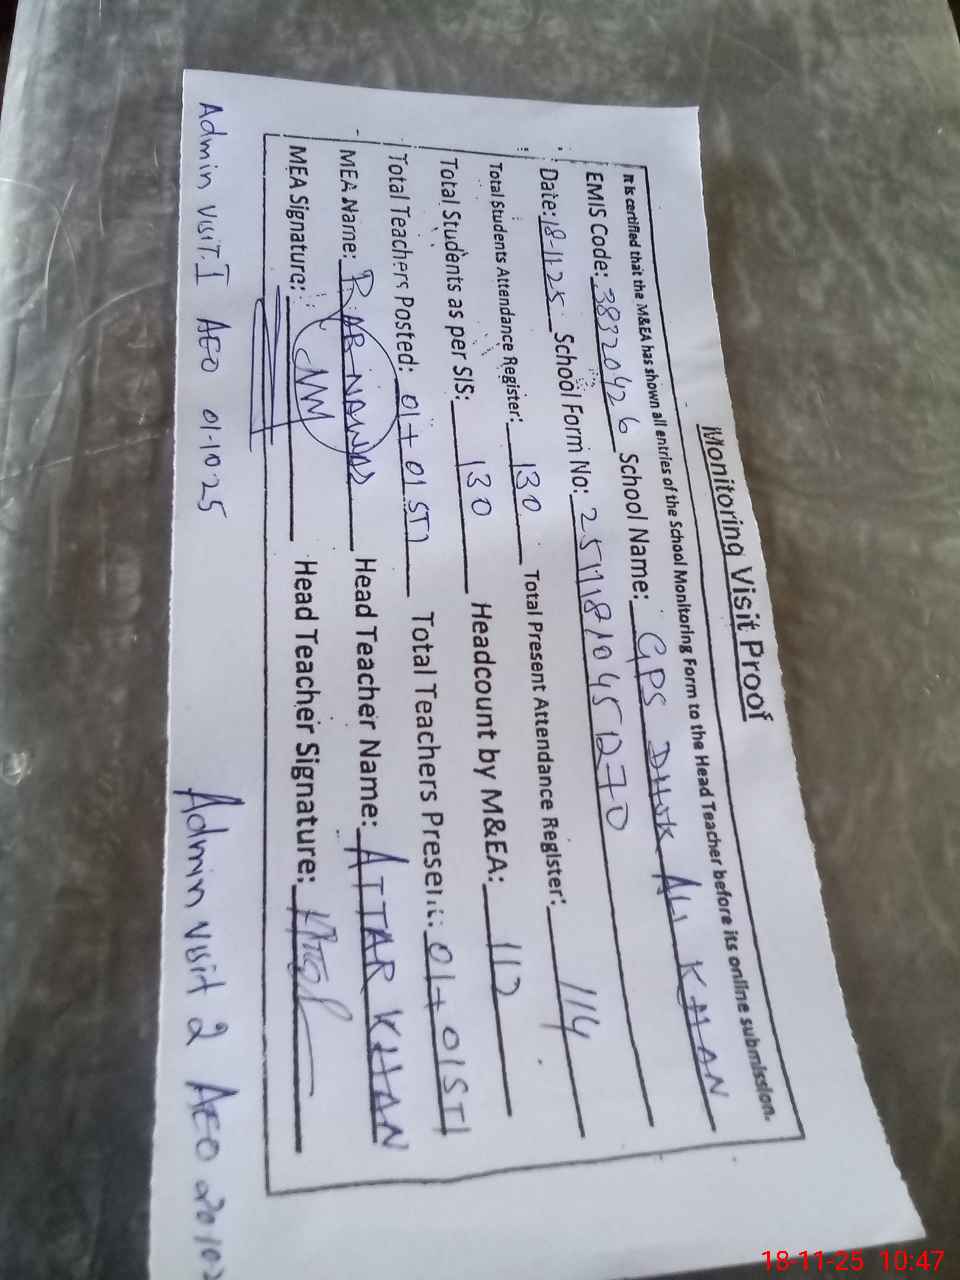 Monitoring Visit Proof
It is certified that the M&EA has shown all entries of the School Monitoring Form to the Head Teacher before its online submission.
EMIS Code: 38320426 School Name: GPS DHOK ALI KHAN
Date: 18-11-25 School Form No: 25111810451270
Total Students Attendance Register: 130 Total Present Attendance Register: 114
Total Students as per SIS: 130 Headcount by M&EA: 112
Total Teachers Posted: 01+01STI Total Teachers Present: 01+01STI
MEA Name: RAB NAWAS Head Teacher Name: ATTAR KHAN
MEA Signature: Head Teacher Signature:
Admin Visit.I AEO 01-10-25 Admin Visit 2 AEO 20102
18-11-25 10:47